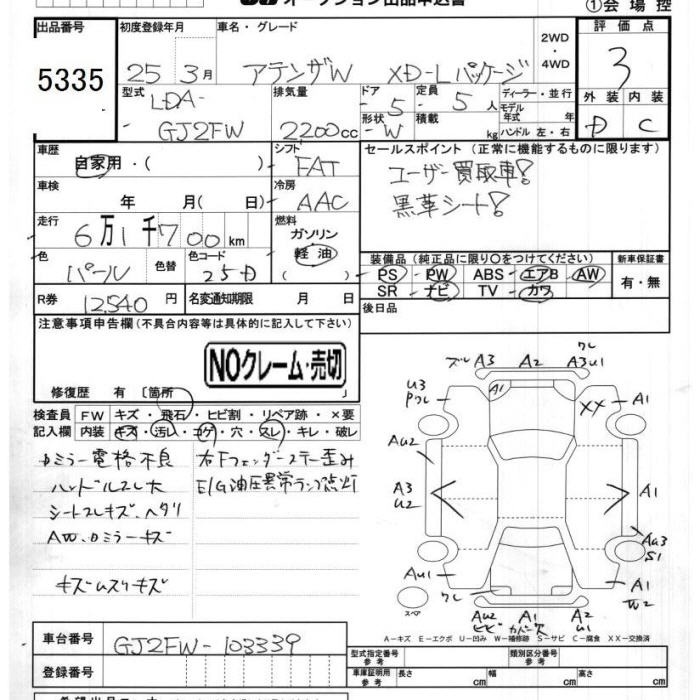 オークション出品申込書
①会場控
出品番号
5335
初度登録年月
25 3月
車名・グレード
アテンザW XD-Lパッケージ
2WD
・
4WD
評価点
3
外装 内装
D C
型式
LDA-
GJ2FW
排気量
2200cc
ドア
5
形状
W
定員
5人
積載
kg
ディーラー・並行
モデル年式 年
ハンドル 左・右
車歴
自家用・( )
シフト
FAT
冷房
AAC
車検
年 月( 日)
走行
6万1千700km
燃料
ガソリン
軽油
( )
色
パール
色替
色コード
25D
R券
12,540円
名変通知期限
月 日
セールスポイント (正常に機能するものに限ります)
ユーザー買取車!
黒革シート!
装備品(純正品に限り○をつけてください)
PS PW ABS エアB AW
SR ナビ TV カワ
新車保証書
有・無
後日品
注意事項申告欄(不具合内容等は具体的に記入して下さい)
NOクレーム・売切
修復歴 有〔箇所 〕
検査員
記入欄
FW キズ・飛石・ヒビ割・リペア跡・×要
内装 キズ・汚レ・コゲ・穴・スレ・キレ・破レ
Dミラー電格不良
ハンドルスレ大
シートスレキズ、ヘタリ
AW、Dミラーキズ
キズムスリキズ
右Fフェンダーステー歪み
E/G油圧異常ランプ点灯
ズレ A3 A2 ワレ A3U1
U3 Pワレ A1 XX A1
AU2
A3 U2 A1
AU3 S1
AU1 A1 W2
ワレ
スペア
AU2 ヒビ A1 カバー欠 A2 U1
A-キズ E-エクボ U-凹み W-補修跡 S-サビ C-腐食 XX-交換済
車台番号
GJ2FW-103339
登録番号
型式指定番号
参考
類別区分番号
参考
車庫証明用
参考
長さ cm 幅 cm 高さ cm